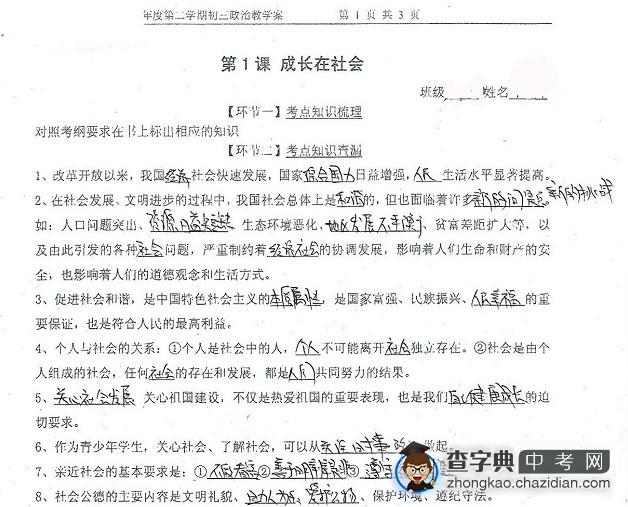 年度第二学期初三政治教学案 第 1 页 共 3 页
第 1 课 成长在社会
班级 姓名
【环节一】考点知识梳理
对照考纲要求在书上标出相应的知识
【环节二】考点知识查漏
1、改革开放以来，我国经济社会快速发展，国家综合国力日益增强，人民生活水平显著提高。
2、在社会发展、文明进步的过程中，我国社会总体上是和谐的，但也面临着许多新的问题
如：人口问题突出、资源日益短缺、生态环境恶化、地区发展不平衡、贫富差距扩大等，以
及由此引发的各种社会问题，严重制约着经济社会的协调发展，影响着人们生命和财产的安
全，也影响着人们的道德观念和生活方式。
3、促进社会和谐，是中国特色社会主义的本质属性，是国家富强、民族振兴、人民幸福的重
要保证，也是符合人民的最高利益。
4、个人与社会的关系：①个人是社会中的人，个人不可能离开社会独立存在。②社会是由个
人组成的社会，任何社会的存在和发展，都是人们共同努力的结果。
5、关心社会发展 关心祖国建设，不仅是热爱祖国的重要表现，也是我们健康成长的迫
切要求。
6、作为青少年学生，关心社会、了解社会，可以从关注时事做起。
7、采近社会的基本要求是：① ②善于明辨是非 ③遵守
8、社会公德的主要内容是文明礼貌、助人为乐、爱护公物、保护环境、遵纪守法。
查字典 中考网
zhongkao.chazidian.com